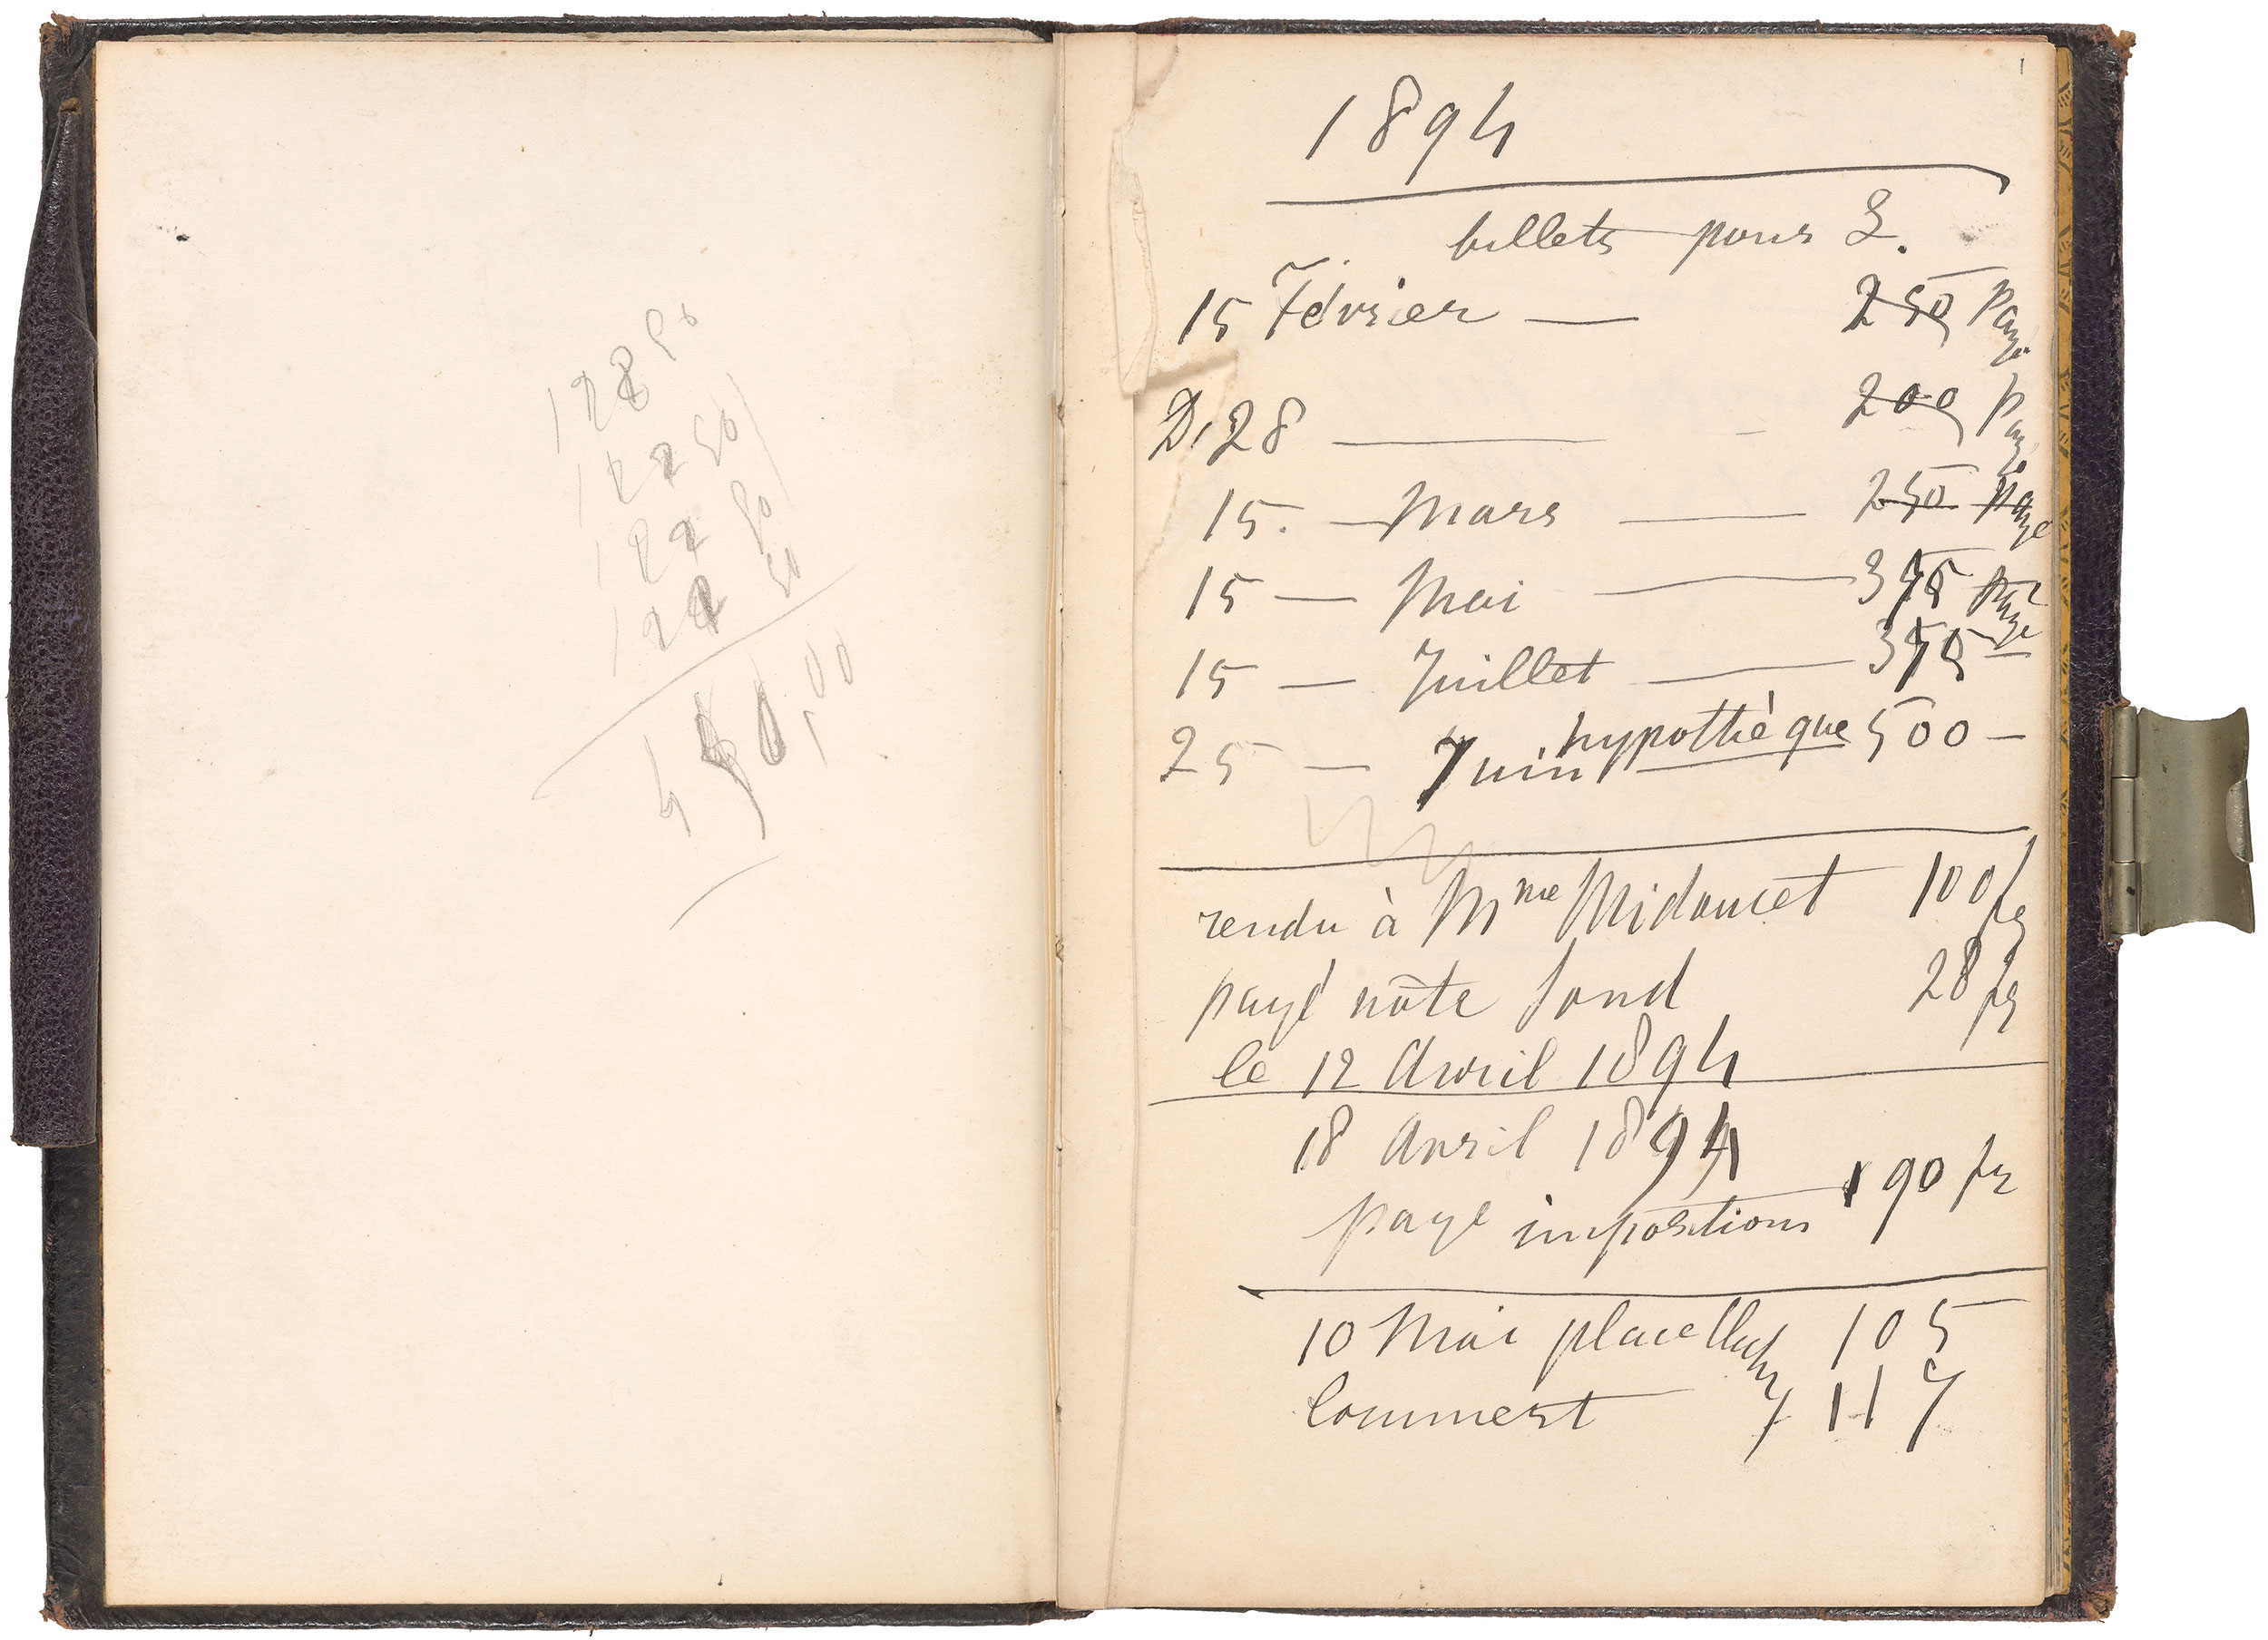 50
122 50
122 50
122 50
00
1
1894
billets pour
15 Février — 250 payé
D. 28 — 200 payé
15. — Mars — 250 payé
15 — Mai — 375 payé
15 — Juillet — 375 —
hypothèque
25 — Juin 500 —
rendu à Mme 100 fr
payé note 28 fr
le 12 Avril 1894
18 Avril 1894
payé impositions 190 fr
10 Mai place 105
117